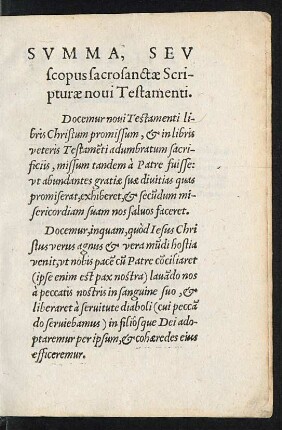 SVMMA, SEV
scopus sacrosanctæ Scri-
pturæ noui Testamenti.
Docemur noui Testamenti li
bris Christum promissum, & in libris
veteris Testamẽti adumbratum sacri-
ficiis, missum tandem à Patre fuisse:
vt abundantes gratiæ suæ diuitias quas
promiserat, exhiberet, & secũdum mi-
sericordiam suam nos saluos faceret.
Docemur, inquam, quòd Iesus Chri
stus verus agnus & vera mũdi hostia
venit, vt nobis pacẽ cũ Patre cõciliaret
(ipse enim est pax nostra) lauãdo nos
à peccatis nostris in sanguine suo, &
liberaret à seruitute diaboli (cui peccã
do seruiebamus) in filiósque Dei ado-
ptaremur per ipsum, & cohæredes eius
efficeremur.